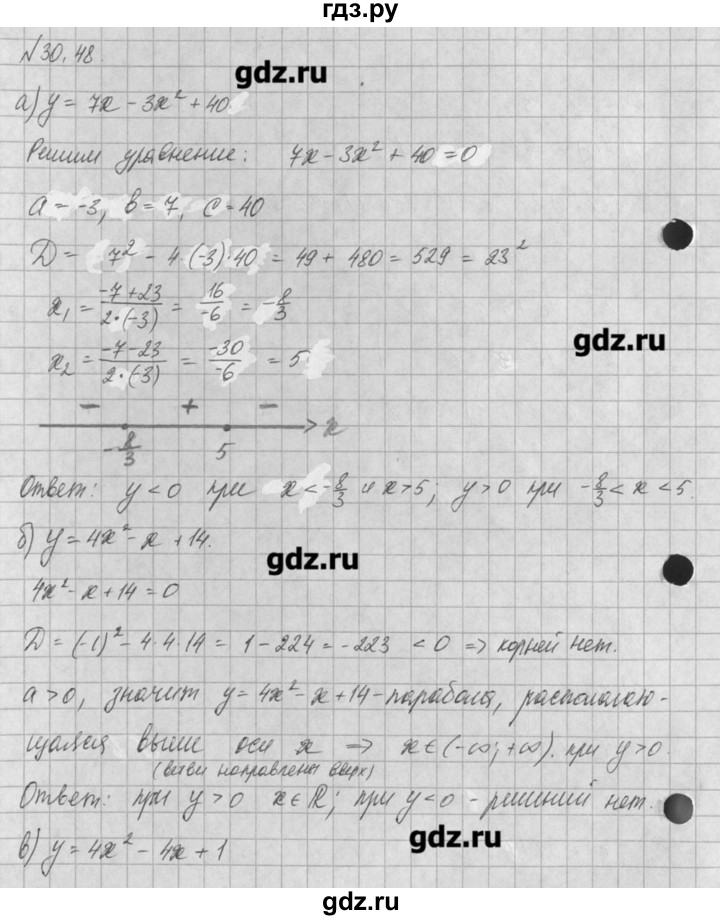 гдз.ру
№30.48
gdz.ru
а) y = 7x - 3x² + 40
Решим уравнение: 7x - 3x² + 40 = 0
a = -3, b = 7, c = 40
D = 7² - 4·(-3)·40 = 49 + 480 = 529 = 23²
x₁ = (-7+23)/(2·(-3)) = 16/-6 = -8/3
gdz.ru
x₂ = (-7-23)/(2·(-3)) = -30/-6 = 5
- + -
-8/3 5 x
Ответ: y < 0 при x < -8/3 и x > 5; y > 0 при -8/3 < x < 5.
б) y = 4x² - x + 14.
gdz.ru
4x² - x + 14 = 0
D = (-1)² - 4·4·14 = 1 - 224 = -223 < 0 => корней нет.
a > 0, значит y = 4x² - x + 14 - парабола, располагаю-
щаяся выше оси x => x ∈ (-∞; +∞). при y > 0.
(ветви направлены вверх)
Ответ: при y > 0 x ∈ R; при y < 0 - решений нет.
gdz.ru
в) y = 4x² - 4x + 1
gdz.ru